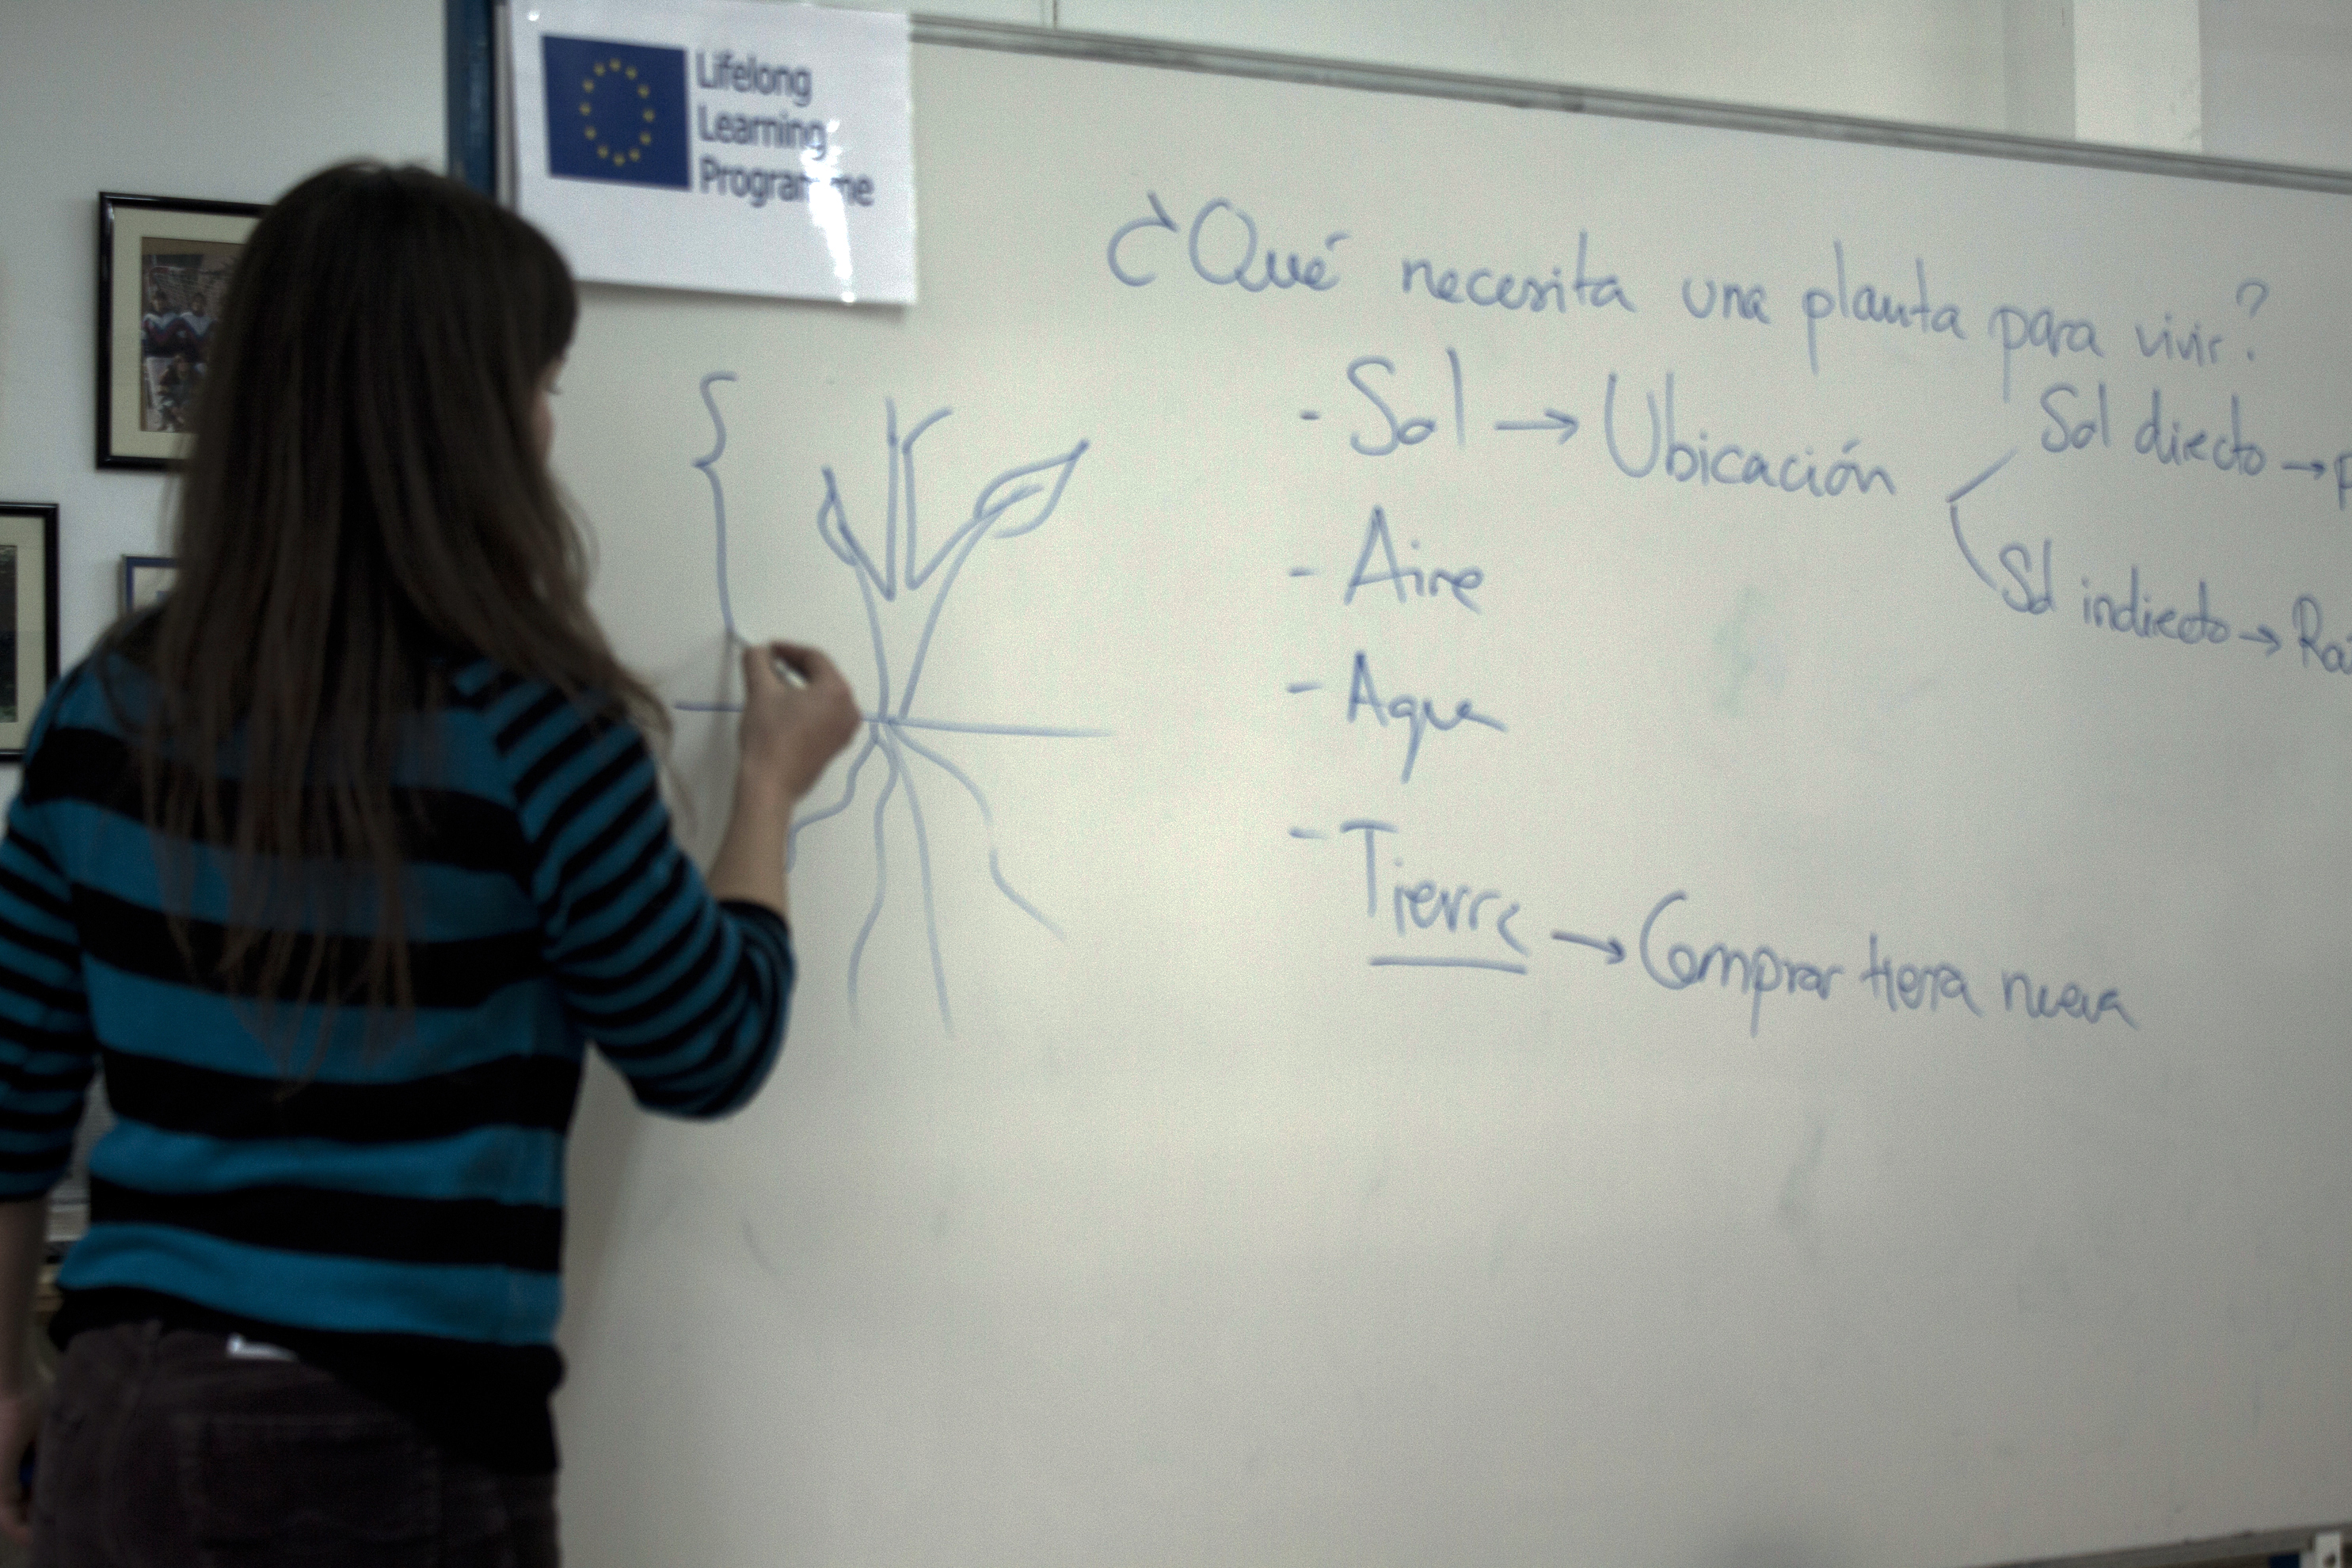 Lifelong
Learning
Programme
¿Qué necesita una planta para vivir?
- Sol → Ubicación
Sol directo →
Sol indirecto →
- Aire
- Agua
- Tierra → Comprar tierra nueva